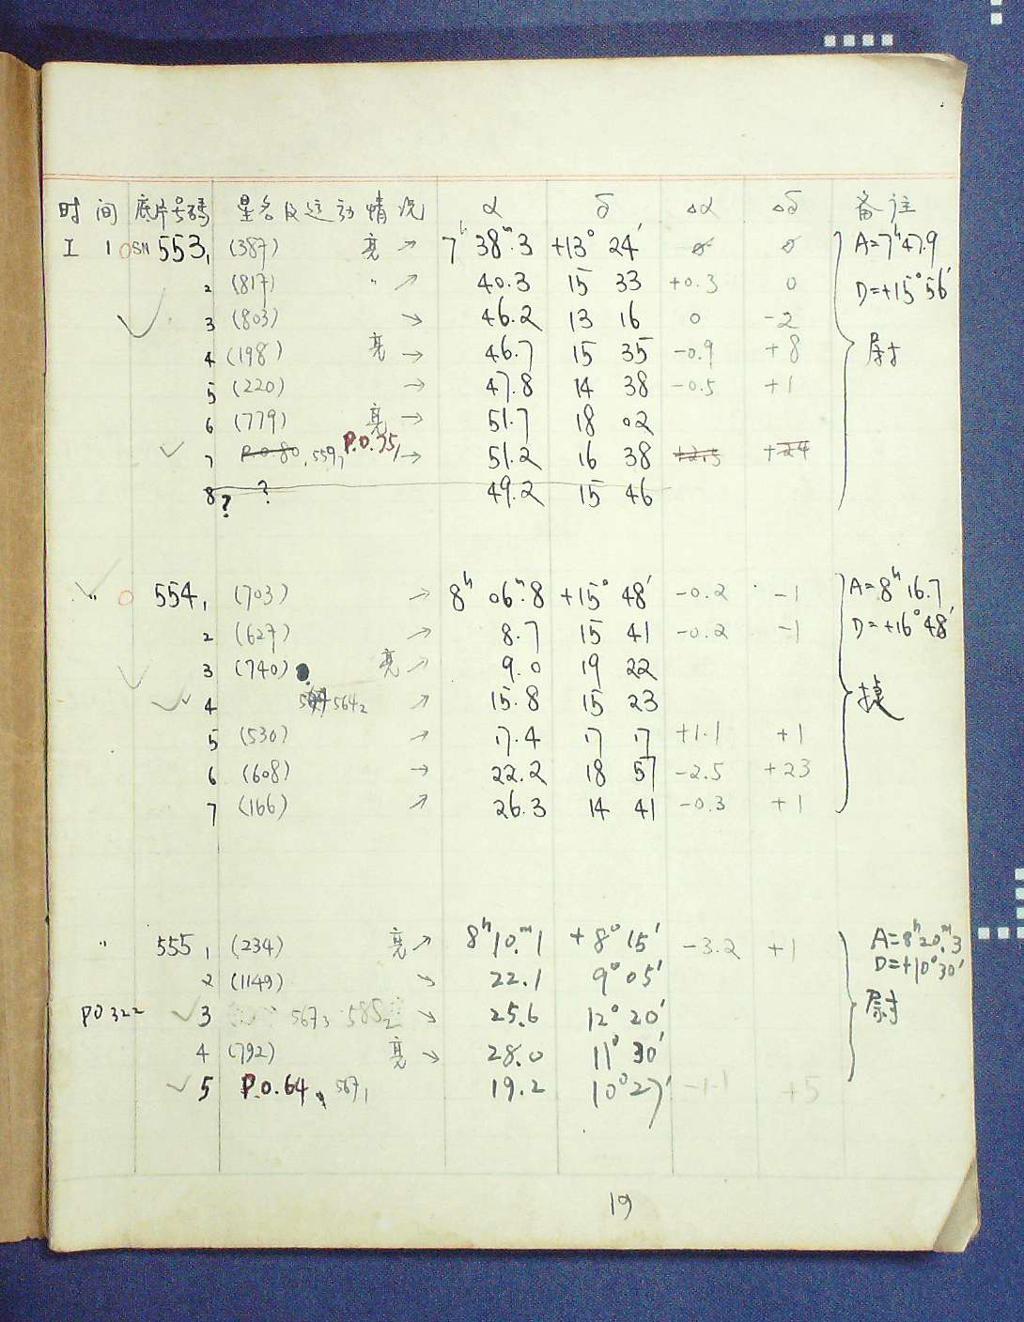 时间 底片号码 星名及运动情况 α δ Δα Δδ 备注
I 1 SN 553₁ (387) 亮 → 7ʰ 38ᵐ.3 +13° 24′ 0 0 A=7ʰ47.9
2 (817) " ↗ 40.3 15 33 +0.3 0 D=+15°56′
3 (803) → 46.2 13 16 0 -2
4 (198) 亮 → 46.7 15 35 -0.9 +8 尉
5 (220) → 47.8 14 38 -0.5 +1
6 (779) 亮 → 51.7 18 02
7 P.O.80, 559₇ P.O.75, → 51.2 16 38 +2.5 +24
8? ? 49.2 15 46
" 554₁ (703) → 8ʰ 06ᵐ.8 +15° 48′ -0.2 -1 A=8ʰ16.7
2 (627) ↗ 8.7 15 41 -0.2 -1 D=+16°48′
3 (740) 亮 ↗ 9.0 19 22
4 564₂ ↗ 15.8 15 23
5 (530) ↗ 17.4 17 17 +1.1 +1
6 (608) → 22.2 18 57 -2.5 +23
7 (166) ↗ 26.3 14 41 -0.3 +1
" 555₁ (234) 亮 ↗ 8ʰ10.ᵐ1 +8° 15′ -3.2 +1 A=8ʰ20.ᵐ3
2 (1149) ↘ 22.1 9° 05′ D=+10°30′
PO 322 3 567₃ 585₂ ↘ 25.6 12° 20′ 尉
4 (792) 亮 ↘ 28.0 11° 30′
5 P.O.64, 567₁ 19.2 10°27′ -1.1 +5
19